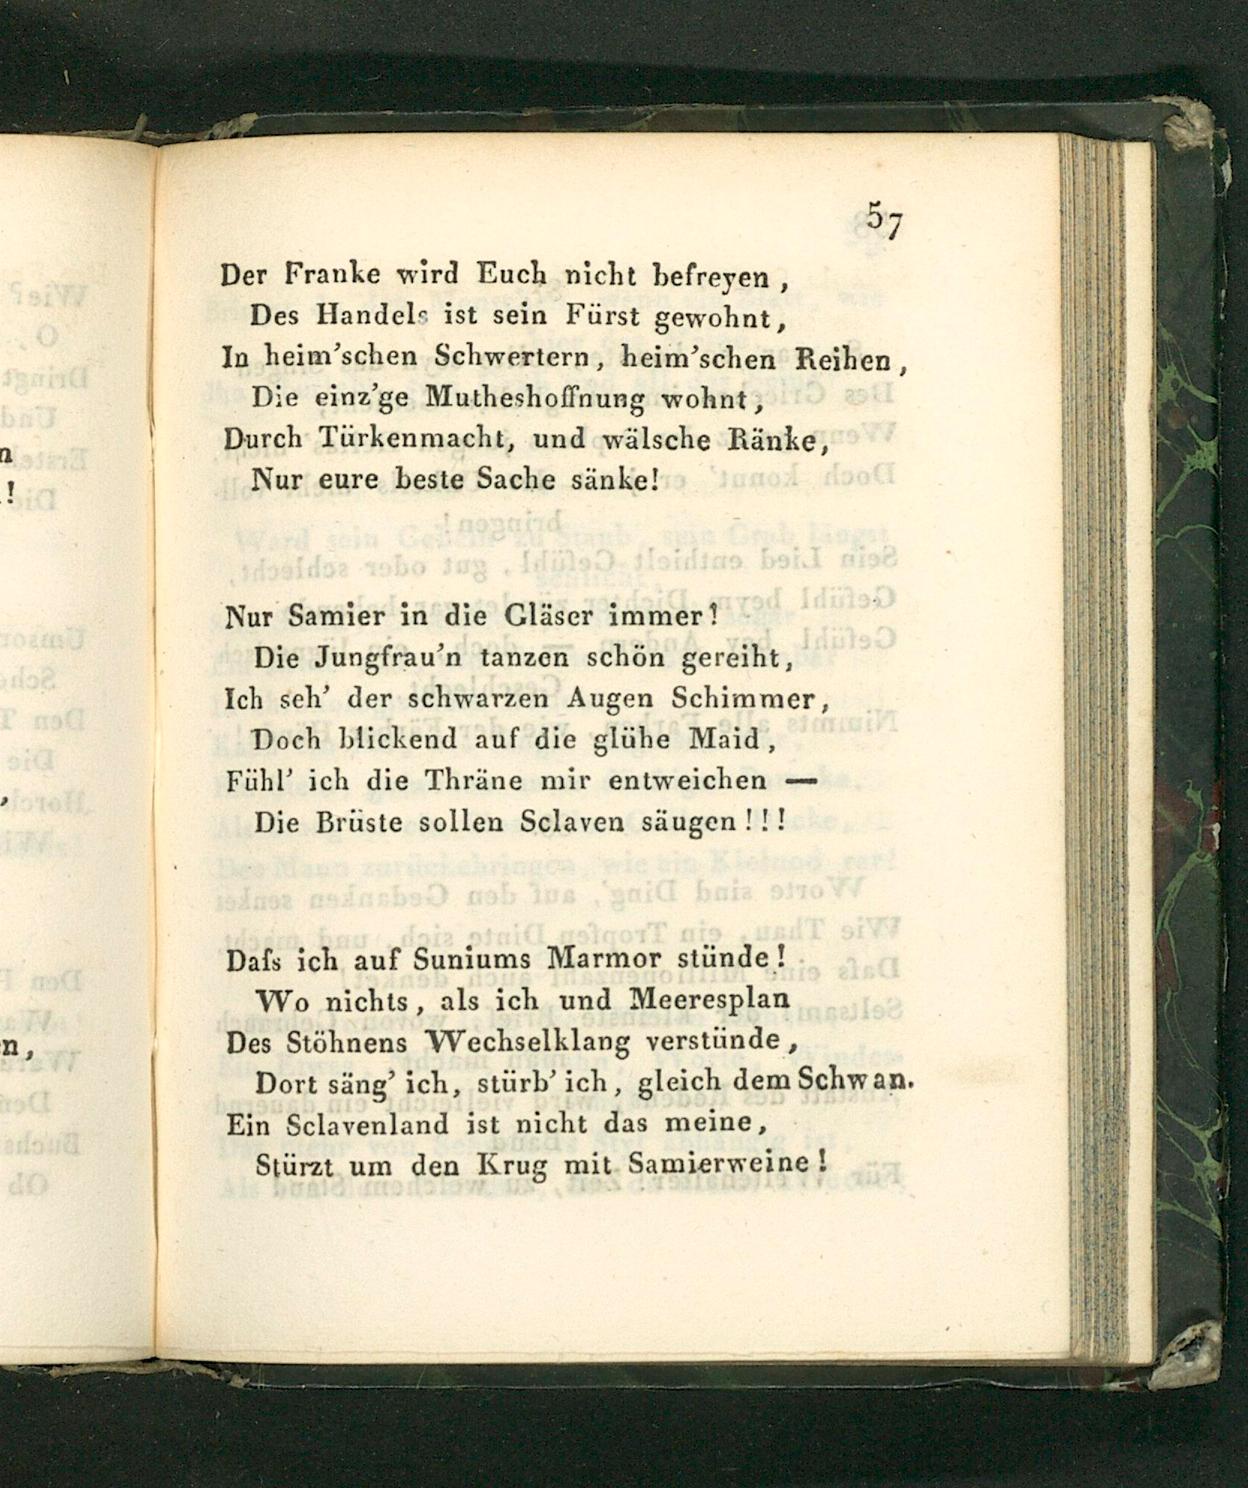 57
Der Franke wird Euch nicht befreyen,
Des Handels ist sein Fürst gewohnt,
In heim'schen Schwertern, heim'schen Reihen,
Die einz'ge Mutheshoffnung wohnt,
Durch Türkenmacht, und wälsche Ränke,
Nur eure beste Sache sänke!
Nur Samier in die Gläser immer!
Die Jungfrau'n tanzen schön gereiht,
Ich seh' der schwarzen Augen Schimmer,
Doch blickend auf die glühe Maid,
Fühl' ich die Thräne mir entweichen —
Die Brüste sollen Sclaven säugen!!!
Daſs ich auf Suniums Marmor stünde!
Wo nichts, als ich und Meeresplan
Des Stöhnens Wechselklang verstünde,
Dort säng' ich, stürb' ich, gleich dem Schwan.
Ein Sclavenland ist nicht das meine,
Stürzt um den Krug mit Samierweine!